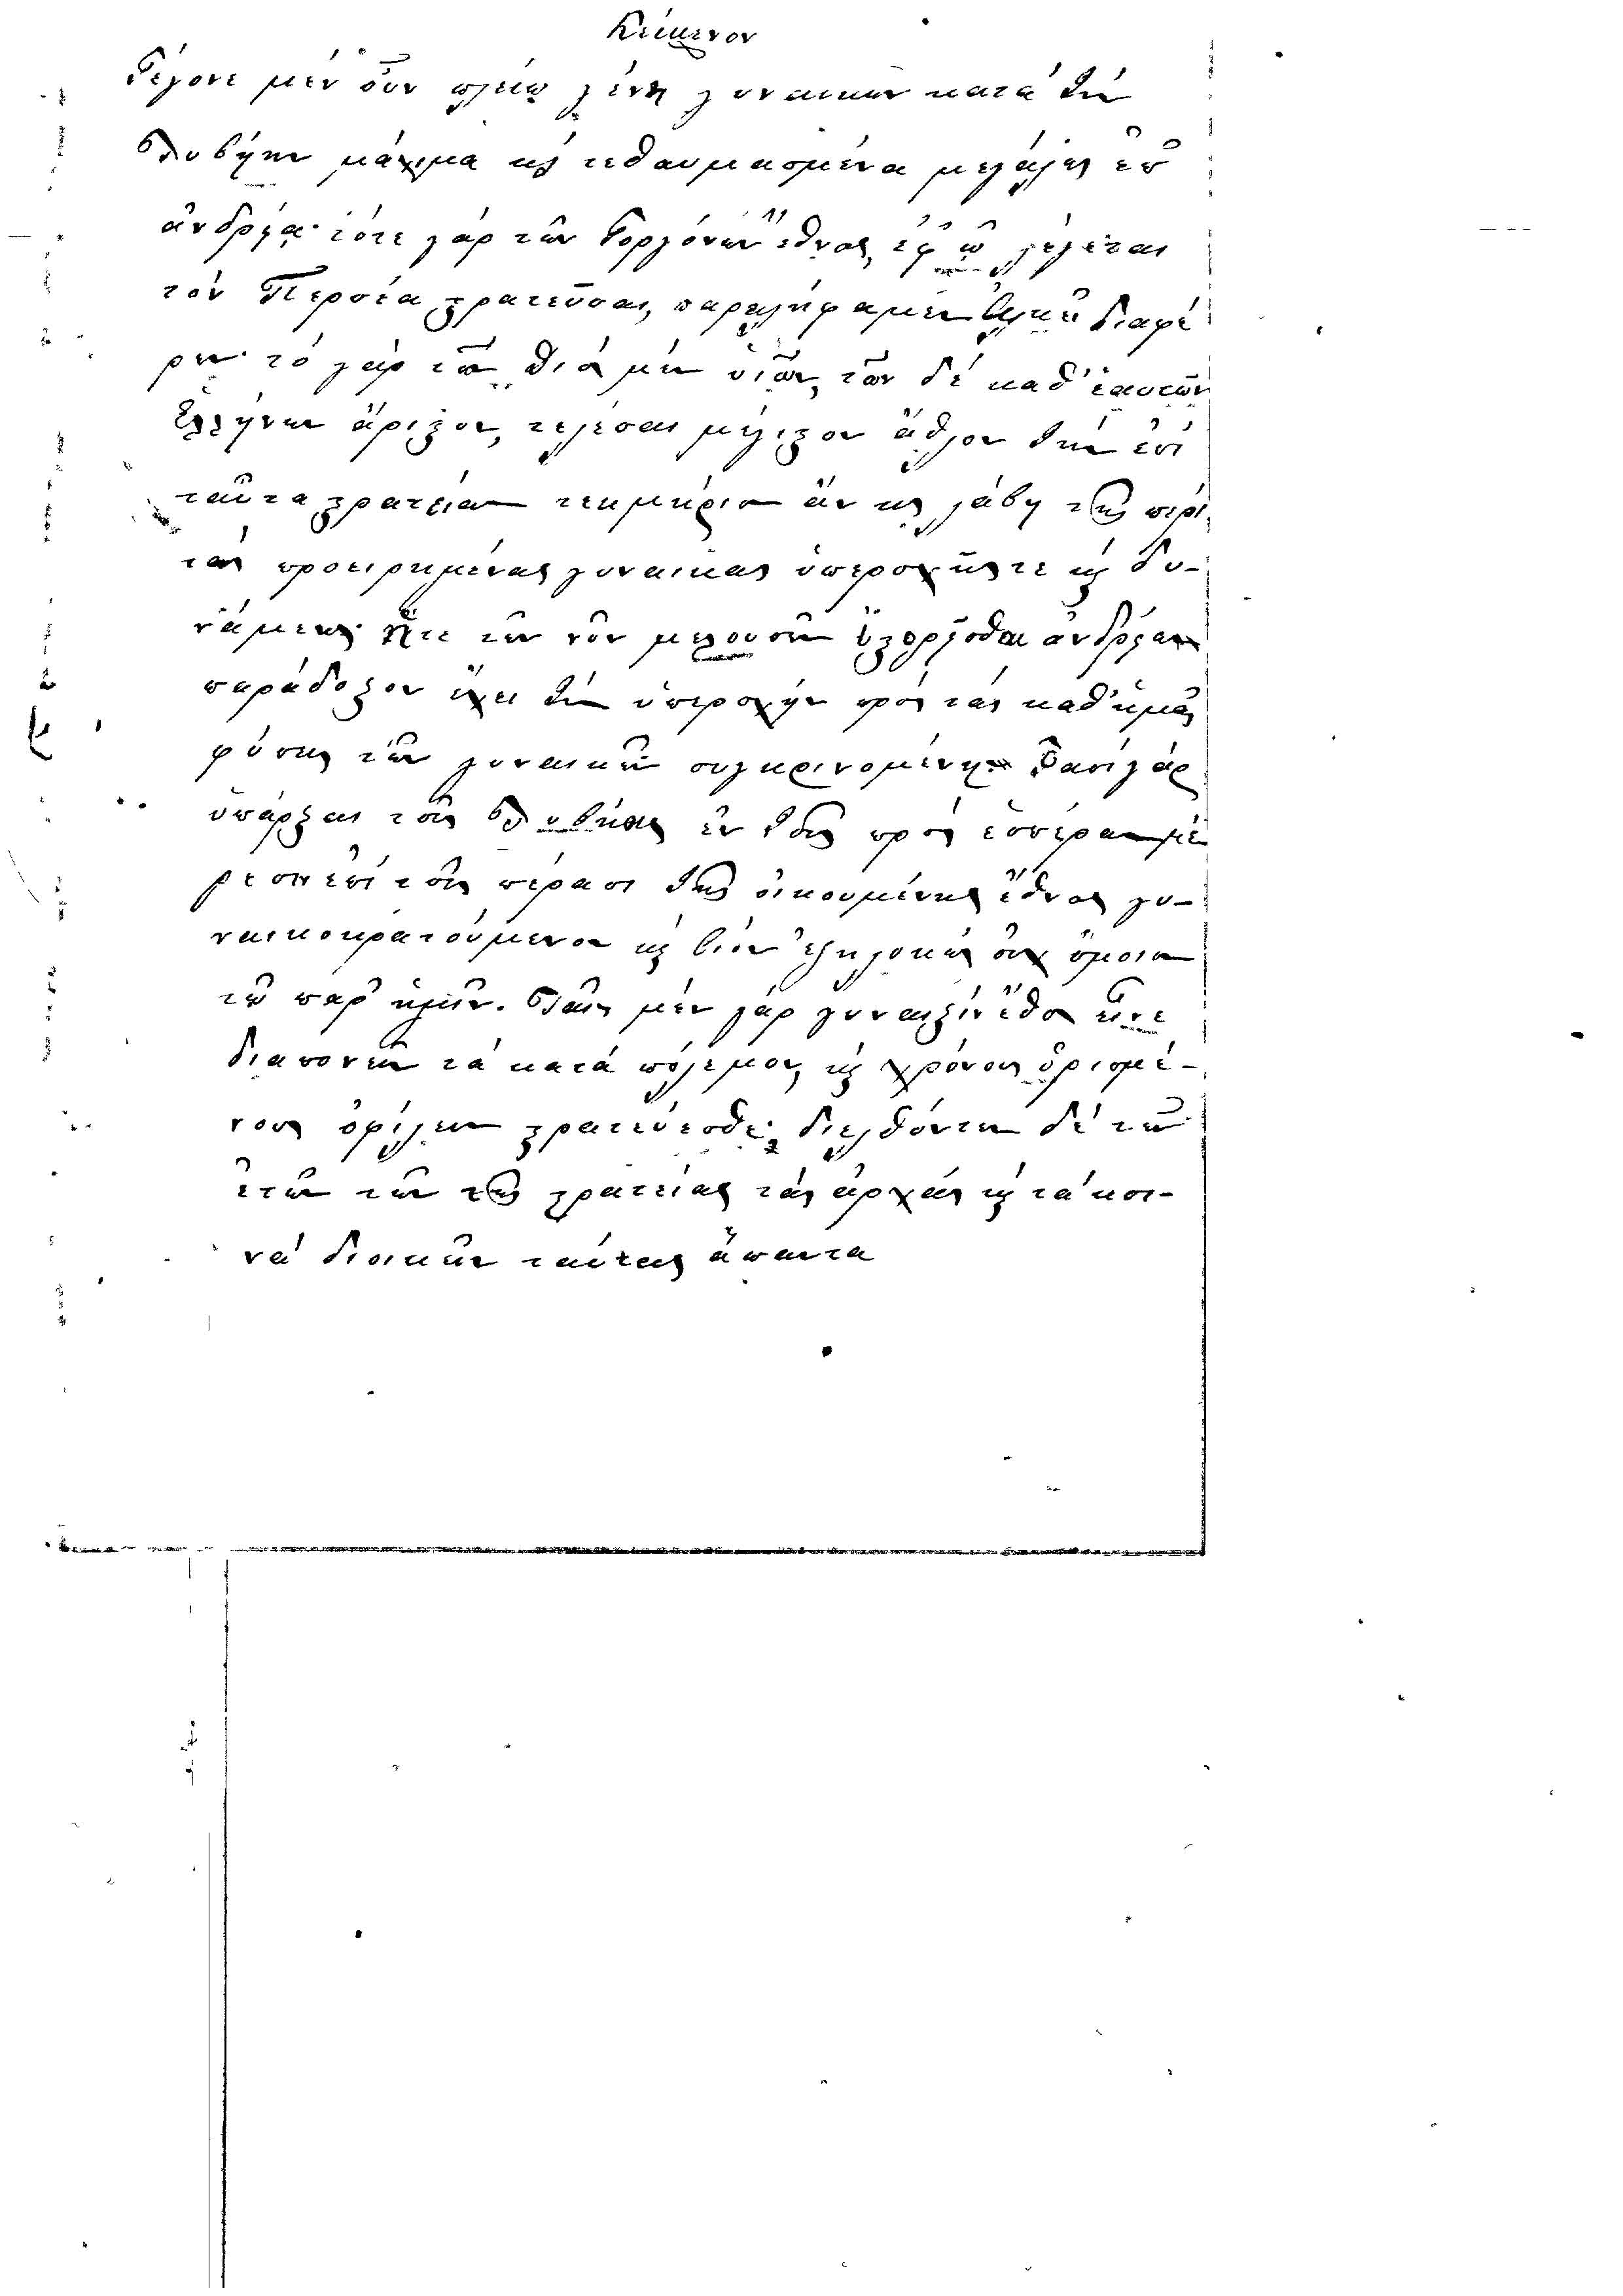 Κείμενον
Γέγονε μὲν οὖν πλείω γένη γυναικῶν κατὰ τὴν
Λιβύην μάχιμα καὶ τεθαυμασμένα μεγάλως ἐπ'
ἀνδρείᾳ· τότε γὰρ τῶν Γοργόνων ἔθνος, ἐφ' ὃ λέγεται
τὸν Περσέα στρατεῦσαι, παρειλήφαμεν ἀλκῇ διαφέ
ρειν· τὸ γὰρ τὸν Διὸς μὲν υἱὸν, τῶν δὲ καθ' ἑαυτὸν
Ἑλλήνων ἄριστον, τελέσαι μέγιστον ἆθλον τὴν ἐπὶ
ταύτας στρατείαν τεκμήριον ἄν τις λάβῃ τῆς περὶ
τὰς προειρημένας γυναῖκας ὑπεροχῆς τε καὶ δυ-
νάμεως. Ἥ τε τῶν νῦν μελλουσῶν ἱστορεῖσθαι ἀνδρεία
παράδοξον ἔχει τὴν ὑπεροχὴν πρὸς τὰς καθ' ἡμᾶς
φύσεις τῶν γυναικῶν συγκρινομένη. Φασὶ γὰρ
ὑπάρξαι τῆς Λιβύης ἐν τοῖς πρὸς ἑσπέραν μέ
ρεσιν ἐπὶ τοῖς πέρασι τῆς οἰκουμένης ἔθνος γυ-
ναικοκρατούμενον καὶ βίον ἐζηλωκὸς οὐχ ὅμοιον
τῷ παρ' ἡμῖν. Ταῖς μὲν γὰρ γυναιξὶν ἔθος εἶναι
διαπονεῖν τὰ κατὰ πόλεμον, καὶ χρόνους ὡρισμέ-
νους ὀφείλειν στρατεύεσθαι, διελθόντων δὲ τῶν
ἐτῶν τῶν τῆς στρατείας τὰς ἀρχὰς καὶ τὰ κοι-
νὰ διοικεῖν ταύτας ἅπαντα